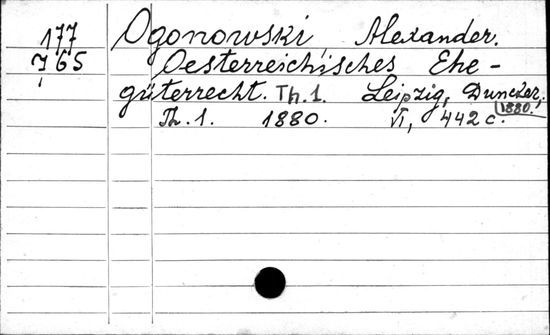 177 Ogonowski, Alexander.
765 Oesterreichisches Ehe-
güterrecht. Th.1. Leipzig, Duncker,
1880.
Th.1. 1880. VI, 442 c.